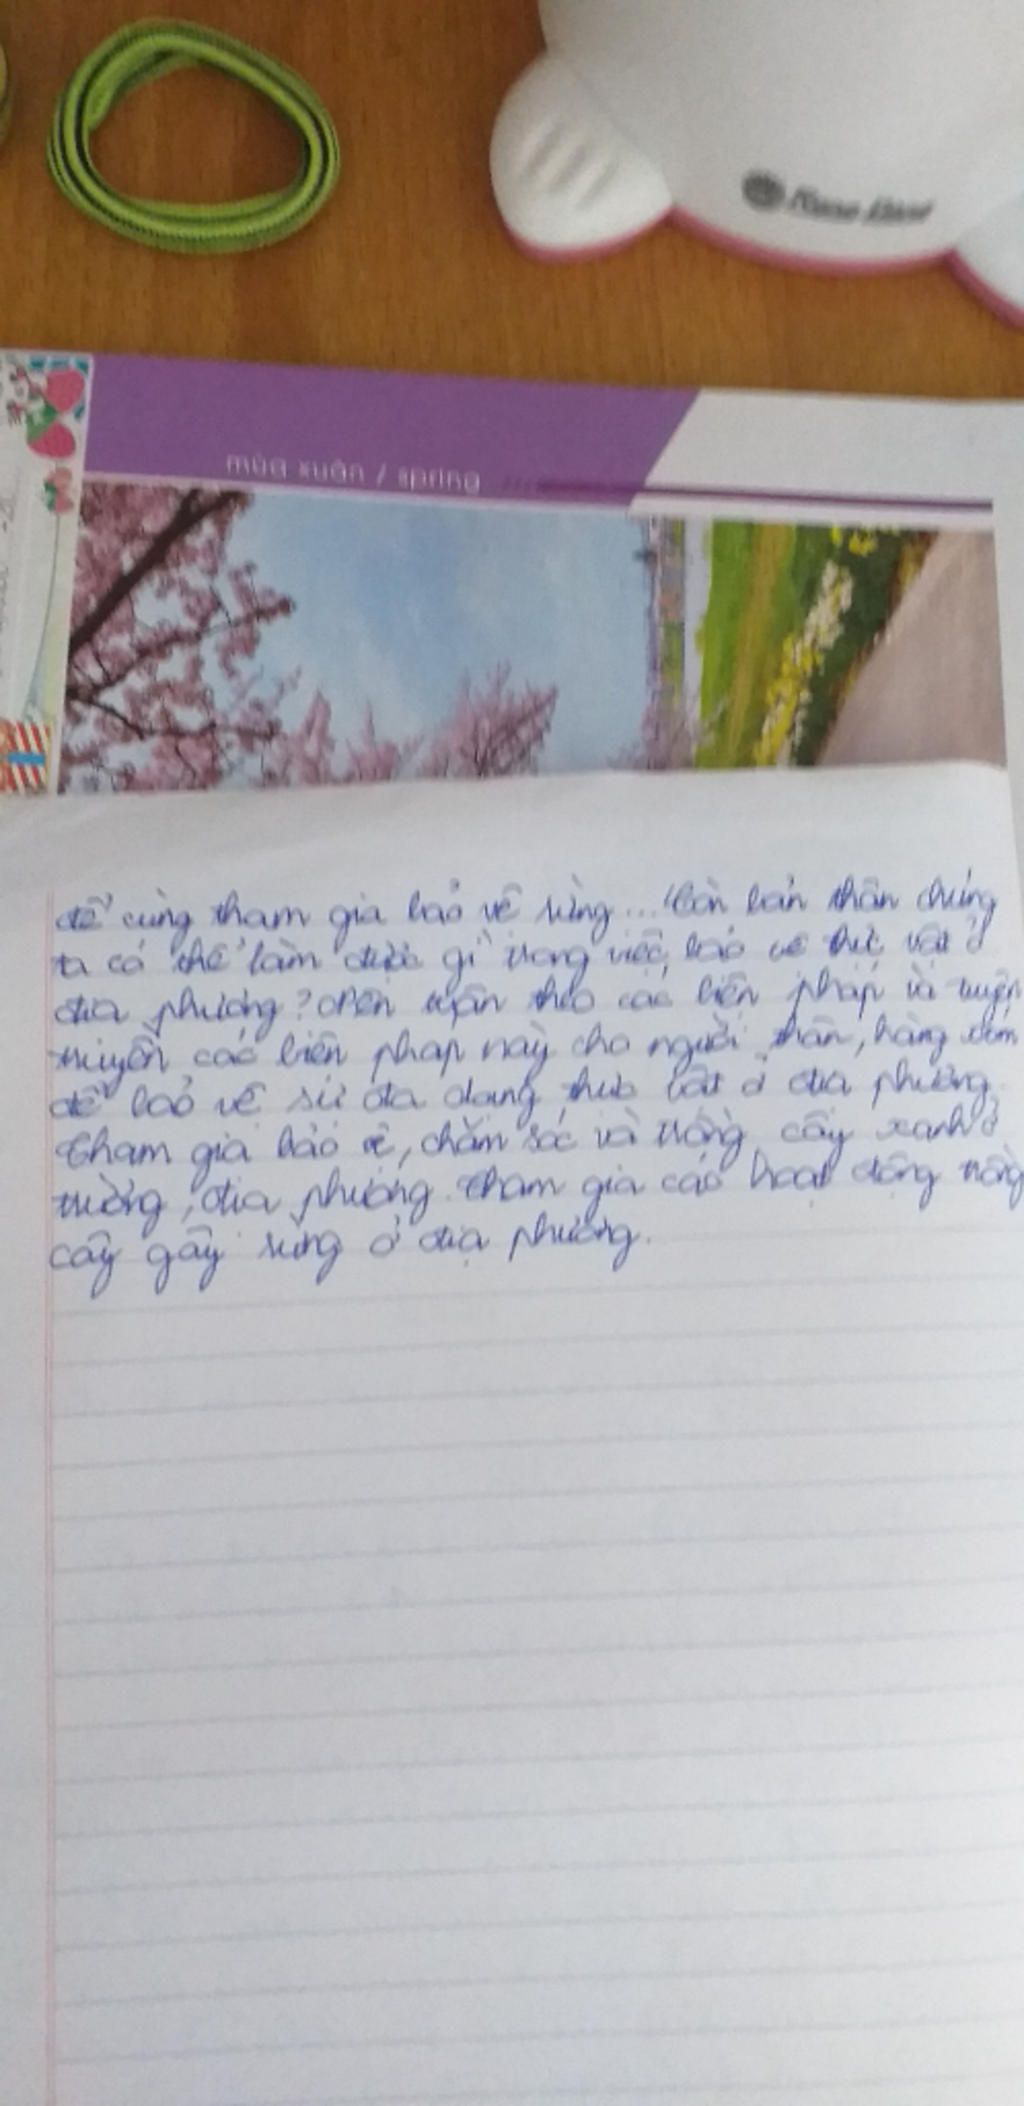 mùa xuân / spring
để cùng tham gia bảo vệ rừng... Còn bản thân chúng
ta có thể làm được gì trong việc bảo vệ thực vật ở
địa phương? Nên tuân theo các biện pháp và tuyên
truyền các biện pháp này cho người thân, hàng xóm
để bảo vệ sự đa dạng thực vật ở địa phương.
Tham gia bảo vệ, chăm sóc và trồng cây xanh ở
trường, địa phương. Tham gia các hoạt động trồng
cây gây rừng ở địa phương.